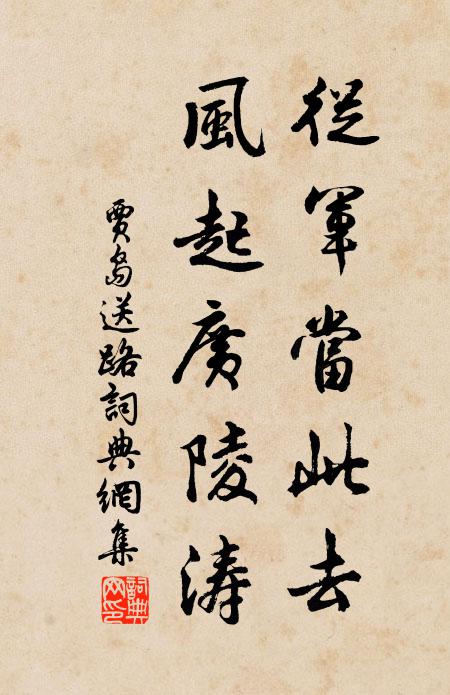 從軍當此去
風起廣陵涛
賈島送路詞典網集
詞典网印